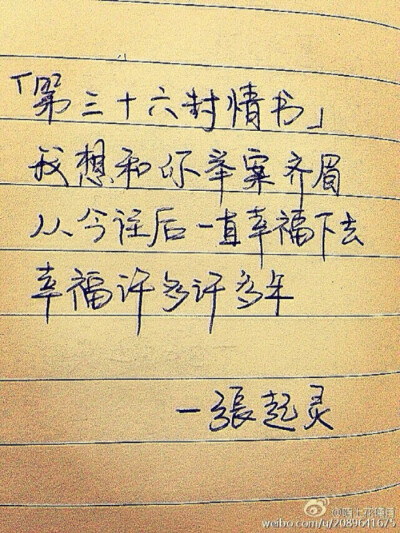 「第三十六封情书」
我想和你举案齐眉
从今往后一直幸福下去
幸福许多许多年
—張起灵
weibo.com/u/2089611675